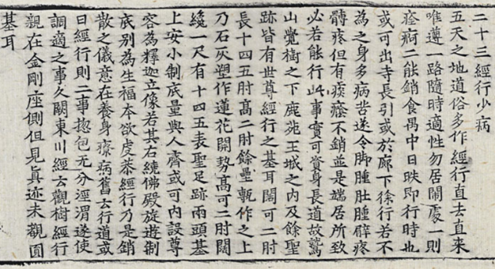 二十三經行小病
五天之地道俗多作經行直去直來
唯遵一路隨時適性勿居閙處一則
痊痾二能銷食禺中日昳即行時也
或可出寺長引或於廊下徐行若不
為之身多病苦遂令脚腫肚腫臂疼
髆疼但有痰癊不銷並是端居所致
必若能行此事實可資身長道故鷲
山覺樹之下鹿苑王城之內及餘聖
跡皆有世尊經行之基耳闊可二肘
長十四五肘高二肘餘壘甎作之上
乃石灰塑作蓮花開勢高可二肘闊
纔一尺有十四五表聖足跡兩頭基
上安小制底量與人齊或可內設尊
容為釋迦立像若其右繞佛殿旋遊制
底別為生福本欲虔恭經行乃是銷
散之儀意在養身療病舊云行道或
曰經行則二事揔包无分涇渭遂使
調適之事久闕東川經云觀樹經行
親在金剛座側但見真迹未觀圓
基耳